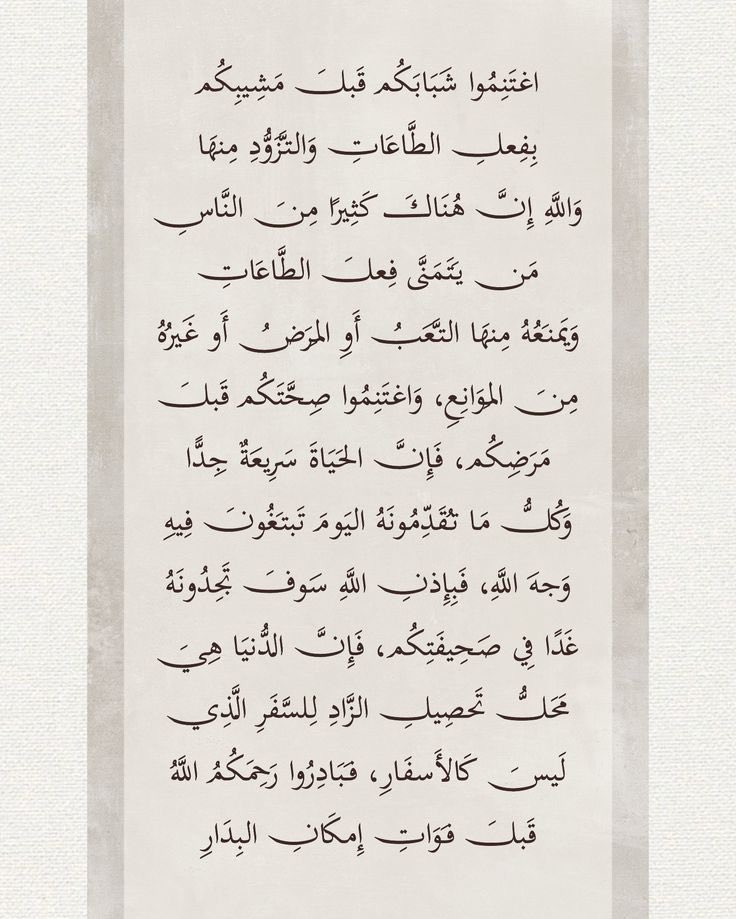 اغتَنِمُوا شَبَابَكُم قَبلَ مَشِيبِكُم
بِفِعلِ الطَّاعَاتِ وَالتَّزَوُّدِ مِنهَا
وَاللَّهِ إِنَّ هُنَاكَ كَثِيرًا مِنَ النَّاسِ
مَن يَتَمَنَّى فِعلَ الطَّاعَاتِ
وَيَمنَعُهُ مِنهَا التَّعَبُ أَوِ المَرَضُ أَو غَيرُهُ
مِنَ المَوَانِعِ، وَاغتَنِمُوا صِحَّتَكُم قَبلَ
مَرَضِكُم، فَإِنَّ الحَيَاةَ سَرِيعَةٌ جِدًّا
وَكُلُّ مَا تُقَدِّمُونَهُ اليَومَ تَبتَغُونَ فِيهِ
وَجهَ اللَّهِ، فَبِإِذنِ اللَّهِ سَوفَ تَجِدُونَهُ
غَدًا فِي صَحِيفَتِكُم، فَإِنَّ الدُّنيَا هِيَ
مَحَلُّ تَحصِيلِ الزَّادِ لِلسَّفَرِ الَّذِي
لَيسَ كَالأَسفَارِ، فَبَادِرُوا رَحِمَكُمُ اللَّهُ
قَبلَ فَوَاتِ إِمكَانِ البِدَارِ